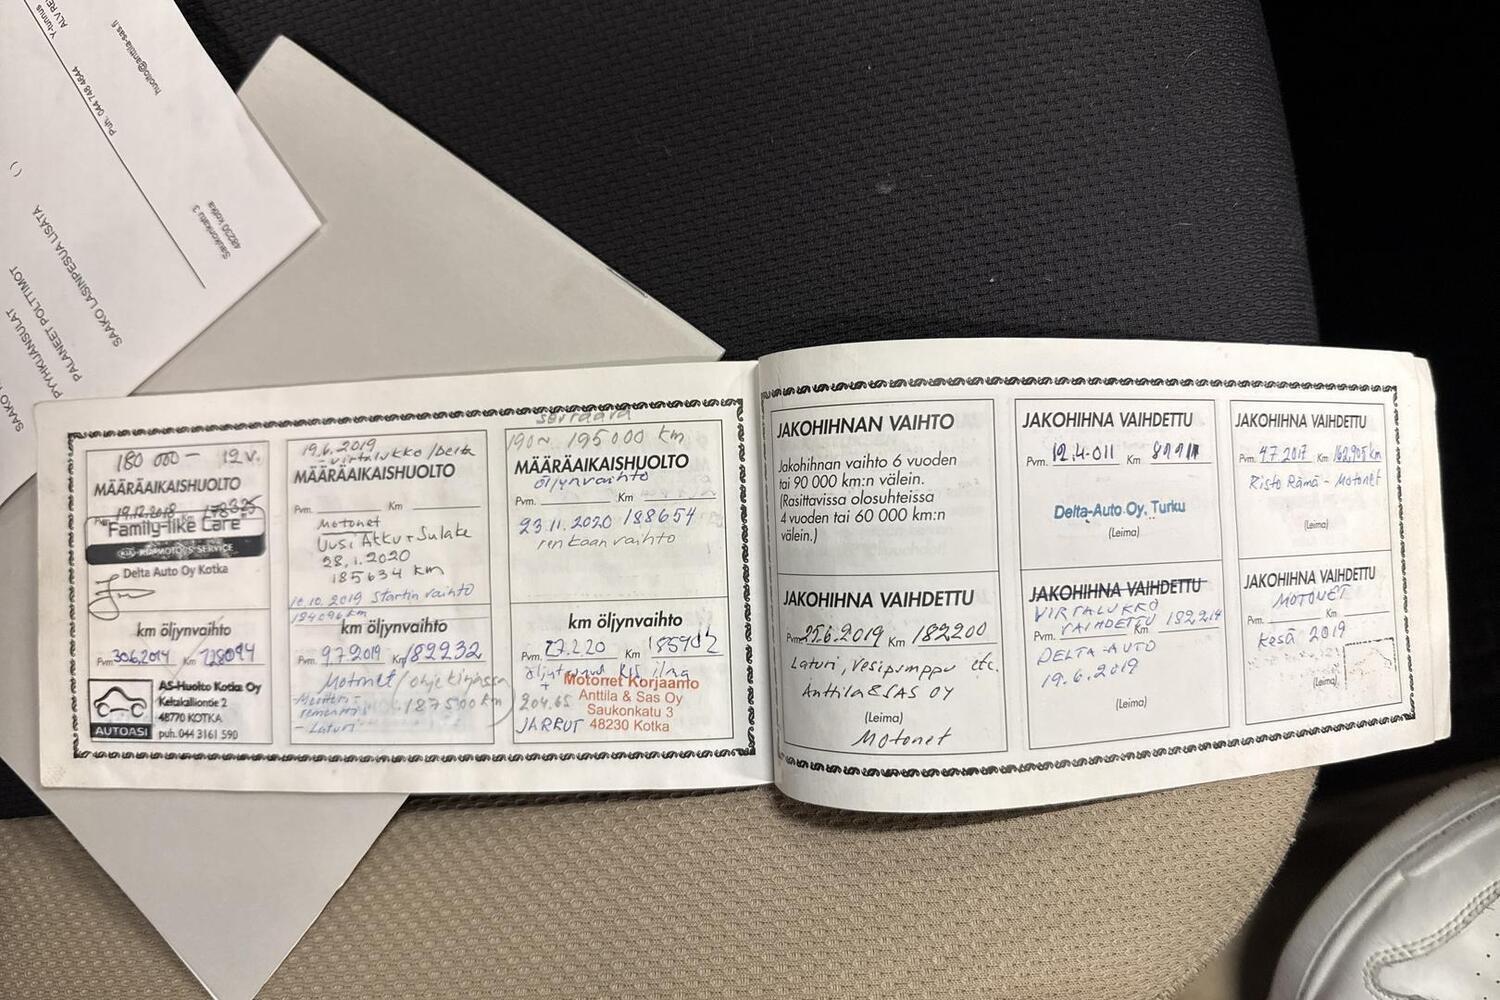 Y-tunnus
Puh. 044 748 4544
huolto@anttila-sas.fi
Saukonkatu 3
48230 kotka
( )
SÄÄKÖ LASINPESUA LISÄTÄ
PALANEET POLTTIMOT
PYYHKIJÄNSULAT
180 000 — 12 v.
MÄÄRÄAIKAISHUOLTO
Pvm. 19.12.2018 Km 178325
"Family-like Care"
KIA MOTORS SERVICE
Delta Auto Oy Kotka
km öljynvaihto
Pvm. 30.6.2014 Km 128094
AUTOASI
AS-Huolto Kotka Oy
Keltakalliontie 2
48770 KOTKA
puh. 044 3161 590
19.6.2019
virtalukko / Delta
MÄÄRÄAIKAISHUOLTO
Pvm. Km
Motonet
Uusi Akku + Sulake
28.1.2020
185634 km
10.10.2019 Startin vaihto
184096 km
km öljynvaihto
Pvm. 9.7.2019 Km 182232
Motonet / ohjekirjassa
187500 km
- Laturi
190 ~ 195000 km
MÄÄRÄAIKAISHUOLTO
öljynvaihto
Pvm. Km
23.11.2020 188654
renkaan vaihto
km öljynvaihto
Pvm. Km 185902
Motonet Korjaamo
Anttila & Sas Oy
Saukonkatu 3
48230 Kotka
204.65
JARRUT
JAKOHIHNAN VAIHTO
Jakohihnan vaihto 6 vuoden
tai 90 000 km:n välein.
(Rasittavissa olosuhteissa
4 vuoden tai 60 000 km:n
välein.)
JAKOHIHNA VAIHDETTU
Pvm. 25.6.2019 Km 182200
Laturi, Vesipumppu etc.
Anttila & SAS OY
(Leima)
Motonet
JAKOHIHNA VAIHDETTU
Pvm. 12.4.011 Km
Delta-Auto Oy, Turku
(Leima)
JAKOHIHNA VAIHDETTU
VIRTALUKKO
Pvm. VAIHDETTU Km 182214
DELTA-AUTO
19.6.2019
(Leima)
JAKOHIHNA VAIHDETTU
Pvm. 4.7.2017 Km 162,905 km
Risto Rämä - Motonet
(Leima)
JAKOHIHNA VAIHDETTU
MOTONET
Pvm. Km
Kesä 2019
(Leima)